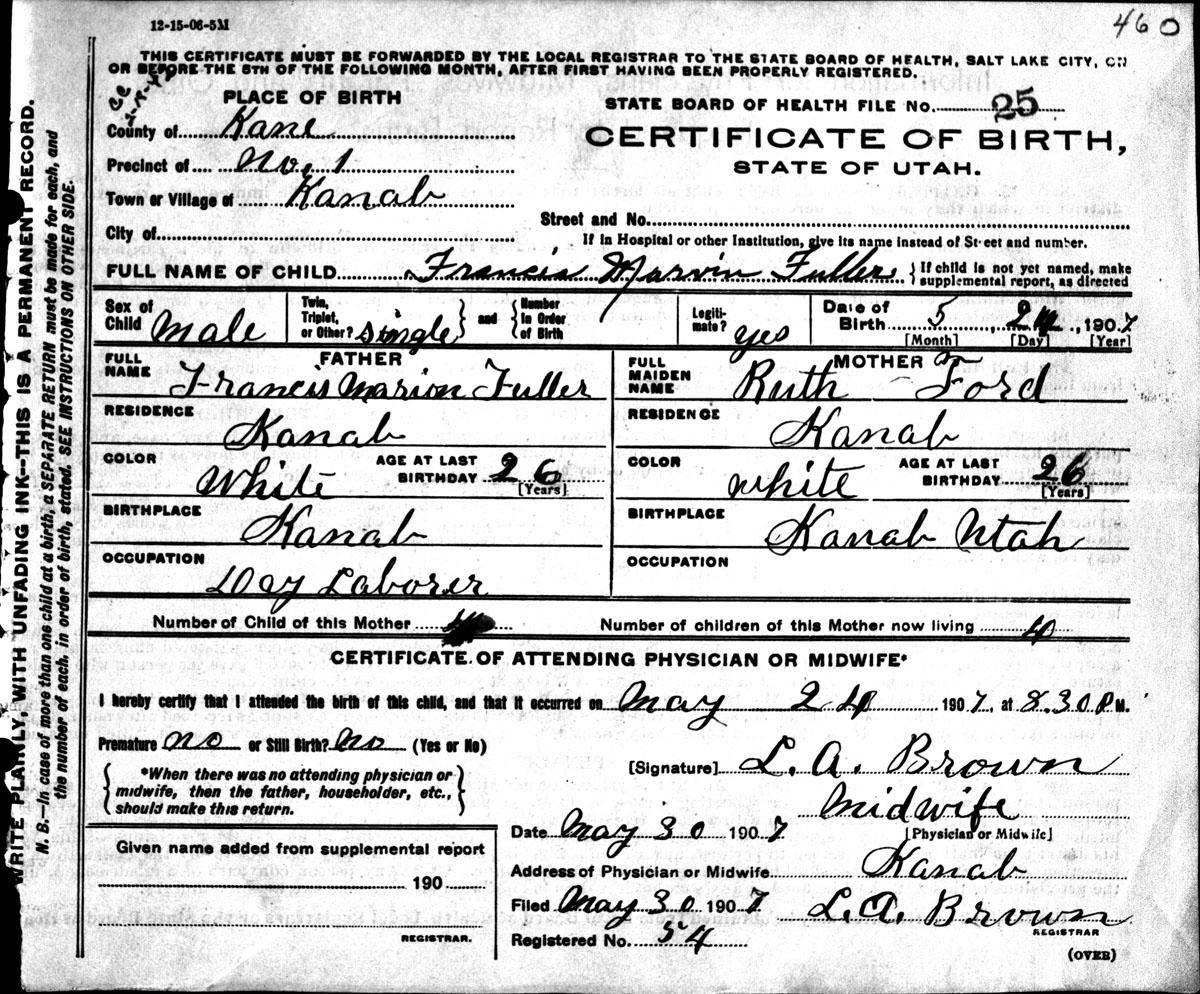 12-15-06-5M
460
THIS CERTIFICATE MUST BE FORWARDED BY THE LOCAL REGISTRAR TO THE STATE BOARD OF HEALTH, SALT LAKE CITY, ON
OR BEFORE THE 5TH OF THE FOLLOWING MONTH, AFTER FIRST HAVING BEEN PROPERLY REGISTERED.
PLACE OF BIRTH
STATE BOARD OF HEALTH FILE NO. 25
County of Kane
CERTIFICATE OF BIRTH,
Precinct of No, 1
STATE OF UTAH.
Town or Village of Kanab
Street and No.
City of
If in Hospital or other Institution, give its name instead of Street and number.
FULL NAME OF CHILD Francis Marvin Fuller { If child is not yet named, make supplemental report, as directed
Sex of Child Male
Twin, Triplet, or Other? single } and { Number in Order of Birth 1
Legitimate? yes
Date of Birth 5, 24, 1907
[Month] [Day] [Year]
FATHER
MOTHER
FULL NAME Francis Marion Fuller
FULL MAIDEN NAME Ruth Ford
RESIDENCE Kanab
RESIDENCE Kanab
COLOR White AGE AT LAST BIRTHDAY 26 [Years]
COLOR white AGE AT LAST BIRTHDAY 26 [Years]
BIRTHPLACE Kanab
BIRTHPLACE Kanab Utah
OCCUPATION Day Laborer
OCCUPATION
Number of Child of this Mother 4
Number of children of this Mother now living 4
CERTIFICATE OF ATTENDING PHYSICIAN OR MIDWIFE*
I hereby certify that I attended the birth of this child, and that it occurred on May 24 1907, at 8.30 P. M.
Premature no or Still Birth? No (Yes or No)
{ *When there was no attending physician or midwife, then the father, householder, etc., should make this return. }
[Signature] L. A. Brown
Midwife
Date May 30 1907 [Physician or Midwife]
Given name added from supplemental report
190
REGISTRAR.
Address of Physician or Midwife Kanab
Filed May 30 1907 L. A. Brown
REGISTRAR
Registered No. 54
(OVER)
WRITE PLAINLY, WITH UNFADING INK--THIS IS A PERMANENT RECORD.
N. B.--In case of more than one child at a birth, a SEPARATE RETURN must be made for each, and
the number of each, in order of birth, stated. SEE INSTRUCTIONS ON OTHER SIDE.